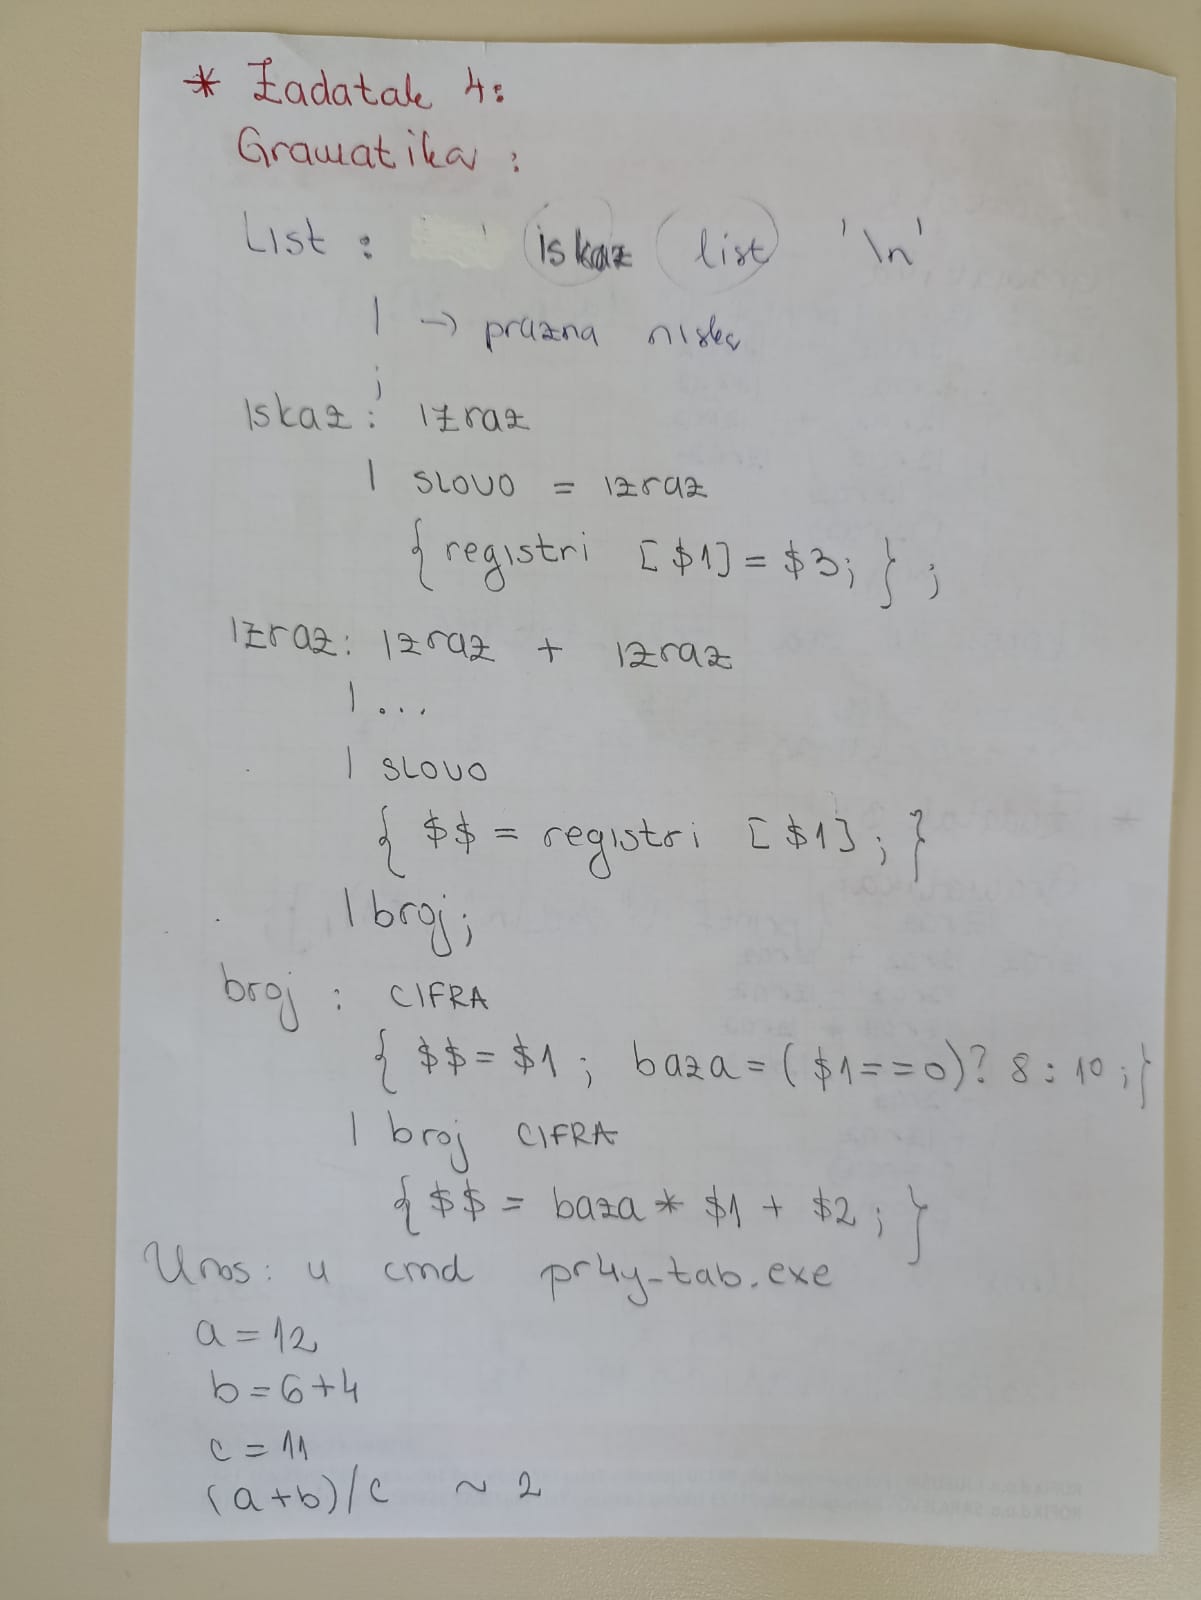 * Zadatak 4:
Gramatika :
List : iskaz list '\n'
| → prazna niska
;
Iskaz : izraz
| SLOVO = izraz
{ registri [$1] = $3; } ;
Izraz : izraz + izraz
| ...
| SLOVO
{ $$ = registri [$1] ; }
| broj ;
broj : CIFRA
{ $$ = $1 ; baza = ( $1 == 0)? 8 : 10 ; }
| broj CIFRA
{ $$ = baza * $1 + $2 ; }
Unos : u cmd pr4y-tab.exe
a = 12
b = 6+4
c = 11
(a+b)/c ~ 2